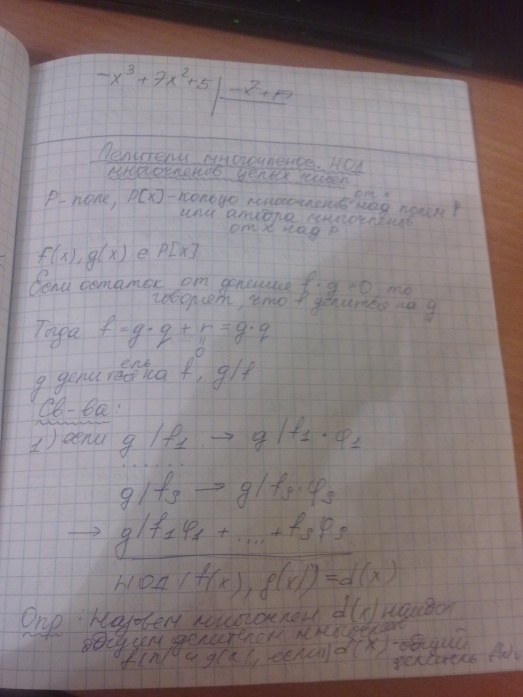 -x³+7x²+5
Делители многочленов. НОД
многочленов целых чисел
P-поле, P[x]-кольцо многочленов от x над полем P
или алгебра многочленов
от x над P
f(x), g(x) ∈ P[x]
Если остаток от деления f · g =0, то
говорят, что f делится на g
Тогда f = g·q + r = g·q
0
g делитель на f, g/f
Св-ва:
1) если g/f₁ → g/f₁·φ₁
......
g/fs → g/fs·φs
→ g/f₁φ₁ + .... + fsφs
НОД (f(x), g(x)) = d(x)
Опр. Назовем многочлен d(x) наибол
общим делителем
f(x) и g(x), если 1) d(x)-общий
делитель